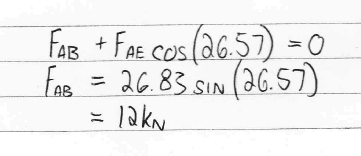 FAB + FAE COS(26.57) = 0
FAB = 26.83 SIN (26.57)
= 12kN